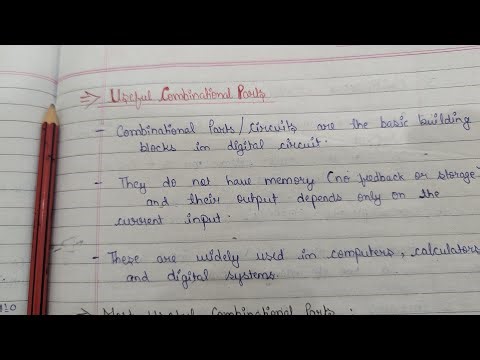 ⇒ Useful Combinational Parts
- Combinational Parts/Circuits are the basic building
blocks in digital circuit.
- They do not have memory (no feedback or storage
and their output depends only on the
current input.
- These are widely used in computers, calculators
and digital systems.
⇒ Most Useful Combinational Parts :